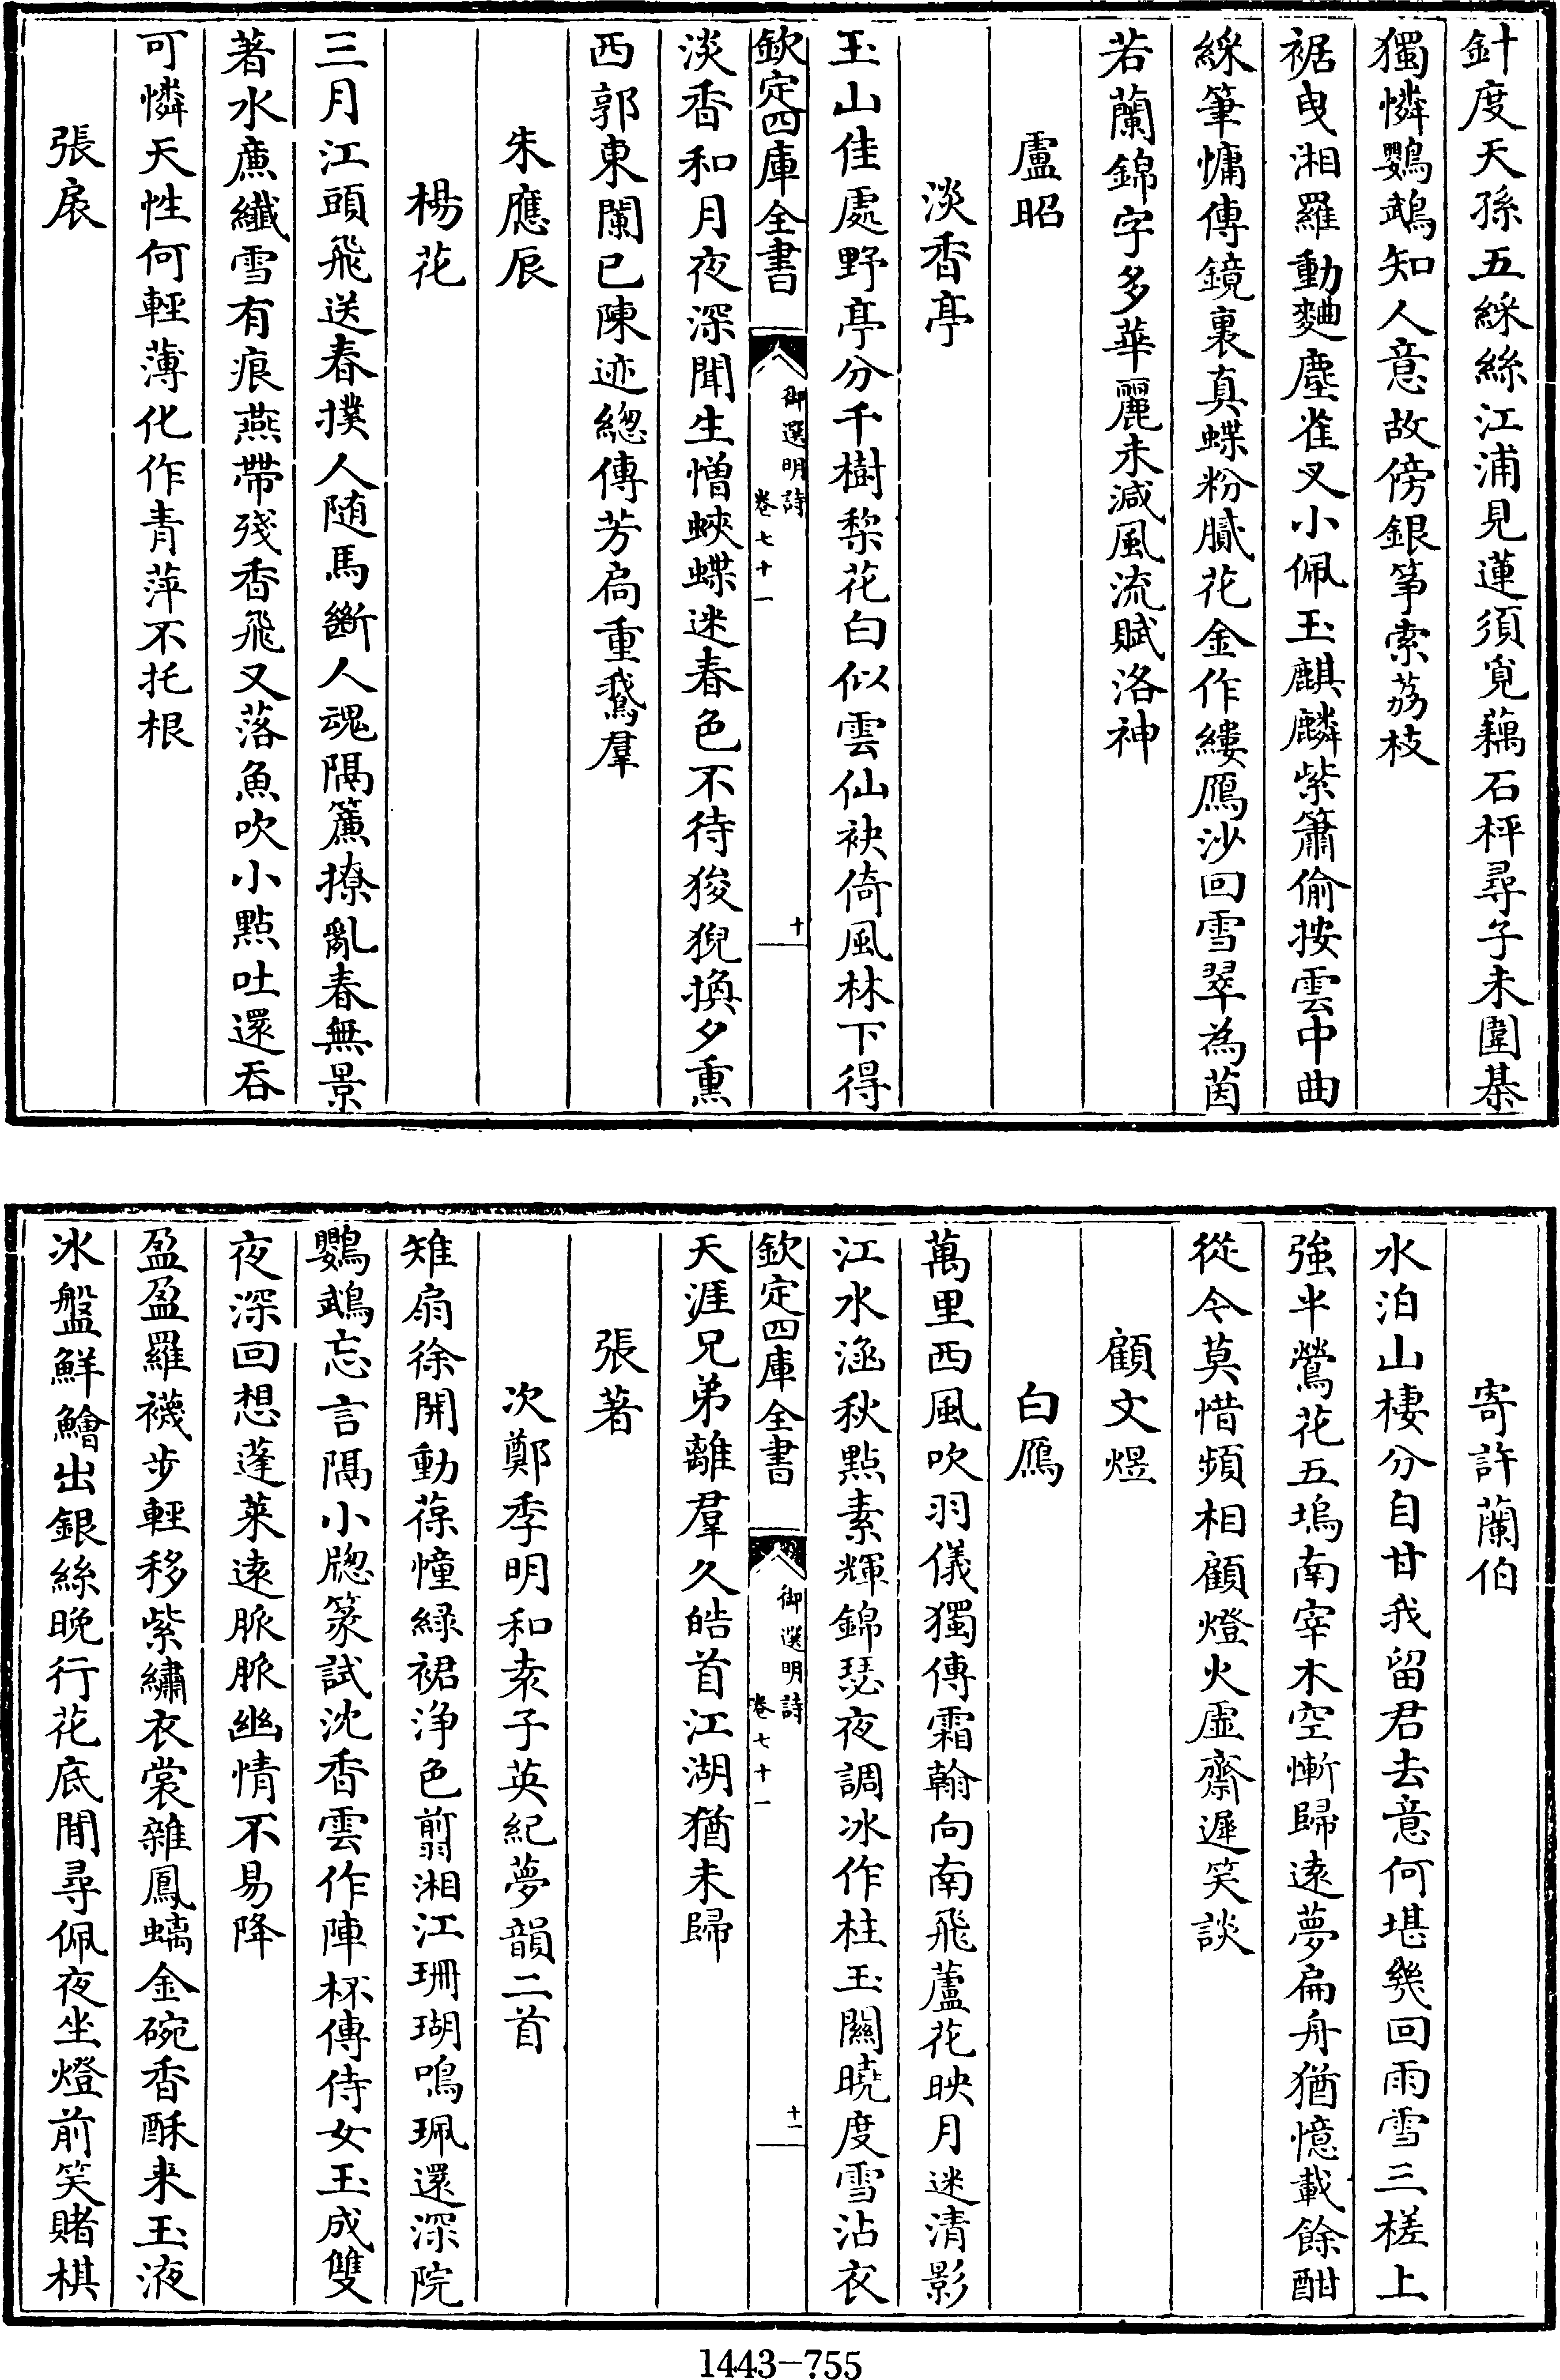 針度天孫五綵絲江浦見蓮須覓藕石枰尋子未圍棊
獨憐鸚鵡知人意故傍銀筝索荔枝
裾曳湘羅動麯塵雀叉小佩玉麒麟紫簫偷按雲中曲
綵筆慵傳鏡裏真蝶粉膩花金作縷鴈沙回雪翠為茵
若蘭錦字多華麗未減風流賦洛神
盧昭
淡香亭
玉山佳處野亭分千樹梨花白似雲仙袂倚風林下得
欽定四庫全書
御選明詩
卷七十一
十
淡香和月夜深聞生憎蛺蝶迷春色不待狻猊換夕熏
西郭東闌已陳迹緫傳芳扃重鵞羣
朱應辰
楊花
三月江頭飛送春撲人随馬斷人魂隔簾撩亂春無景
著水廉纖雪有痕燕帶殘香飛又落魚吹小點吐還吞
可憐天性何輕薄化作青萍不托根
張扆
寄許蘭伯
水泊山棲分自甘我留君去意何堪幾回雨雪三槎上
強半鶯花五塢南宰木空慚歸逺夢扁舟猶憶載餘酣
從今莫惜頻相顧燈火虛齋遲笑談
顧文煜
白鴈
萬里西風吹羽儀獨傳霜翰向南飛蘆花映月迷清影
江水涵秋點素輝錦瑟夜調冰作柱玉關曉度雪沾衣
欽定四庫全書
御選明詩
卷七十一
十一
天涯兄弟離羣久皓首江湖猶未歸
張著
次鄭季明和袁子英紀夢韻二首
雉扇徐開動葆幢緑裙浄色翦湘江珊瑚鳴珮還深院
鸚鵡忘言隔小牕篆試沈香雲作陣杯傳侍女玉成雙
夜深回想蓬萊逺脈脈幽情不易降
盈盈羅襪步輕移紫繡衣裳雜鳳螭金碗香酥来玉液
冰盤鮮鱠出銀絲晚行花底閒尋佩夜坐燈前笑賭棋
1443-755